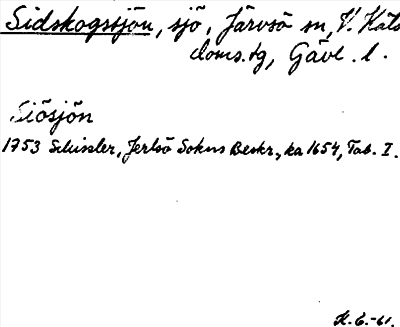 Sidskogssjön, sjö, Järvsö sn, V. Häls
doms.sg, Gävl. l.
Siösjön
1753 Schissler, Jerlsö Sokns Beskr., ka 1654, Tab. I.
K. G.-61.